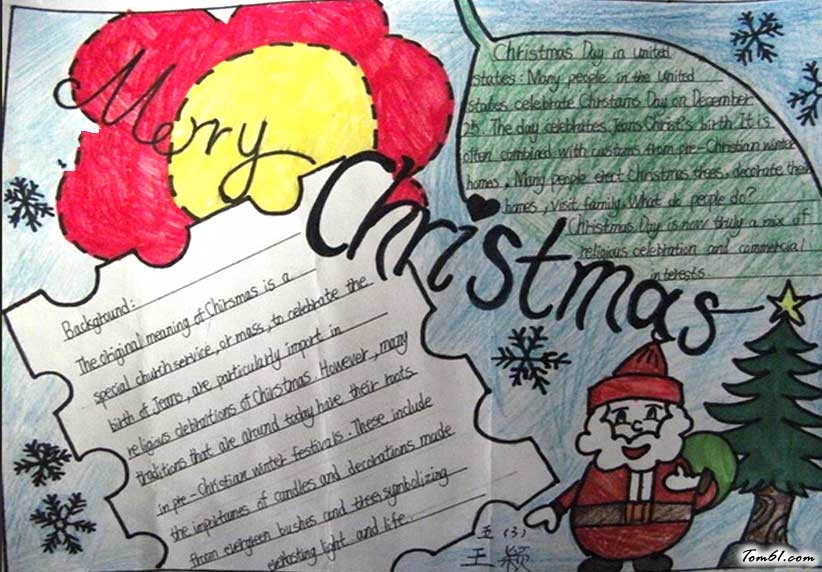 Merry
Christmas
Christmas Day in united
states: Many people in the United
states celebrate Christams Day on December
25. The day celebrates Jeans Christ's birth It is
often combined with customs from pre-Christian winter
homes. Many people erect Christmas trees, decorate their
homes, visit family. What do people do?
Christmas Day is now truly a mix of
religious celebration and commercial
interests
Background:
The original meaning of Chirsmas is a
special church service, or mass, to celebrate the
birth of Jeans, are particularly import in
religious clebraitions of Christmas. However, many
traditions that are around today have their roots
in pre-Christian winter festivals. These include
the importances of candles and decorations made
from evergreen bushes and tree, symbolizing
everlasting light and life.
五(3)
王颖
Tom61.com